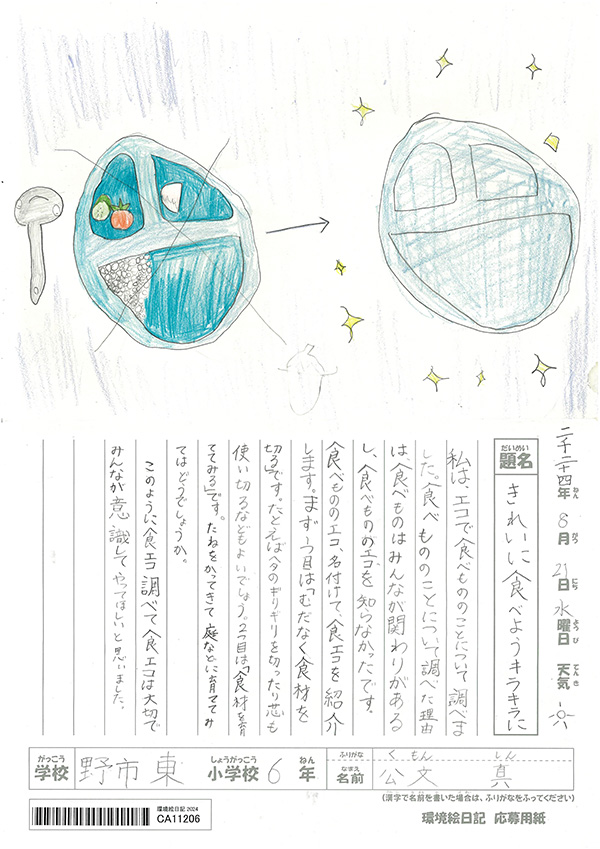 二千二十四年 8月 21日 水曜日 天気
ねん がつ にち ようび てんき
だいめい
題名
きれいに食べようキラキラに
私は、エコで食べもののことについて調べま
した。食べもののことについて調べた理由
は、食べものはみんなが関わりがある
し、食べもののエコを知らなかったです。
食べもののエコ、名付けて、食エコを紹介
します。まず1つ目は「むだなく食材を
切る」です。たとえばヘタのギリギリを切ったり芯も
使い切るなどもよいでしょう。2つ目は「食材を育
ててみる」です。たねをかってきて庭などに育ててみ
てはどうでしょうか。
このように食エコ調べて食エコは大切で
みんなが意識してやってほしいと思いました。
がっこう
学校
野市東
しょうがっこう
小学校
6
ねん
年
ふりがな
なまえ
名前
くもん しん
公文 真
(漢字で名前を書いた場合は、ふりがなをふってください)
環境絵日記 2024
CA11206
環境絵日記 応募用紙